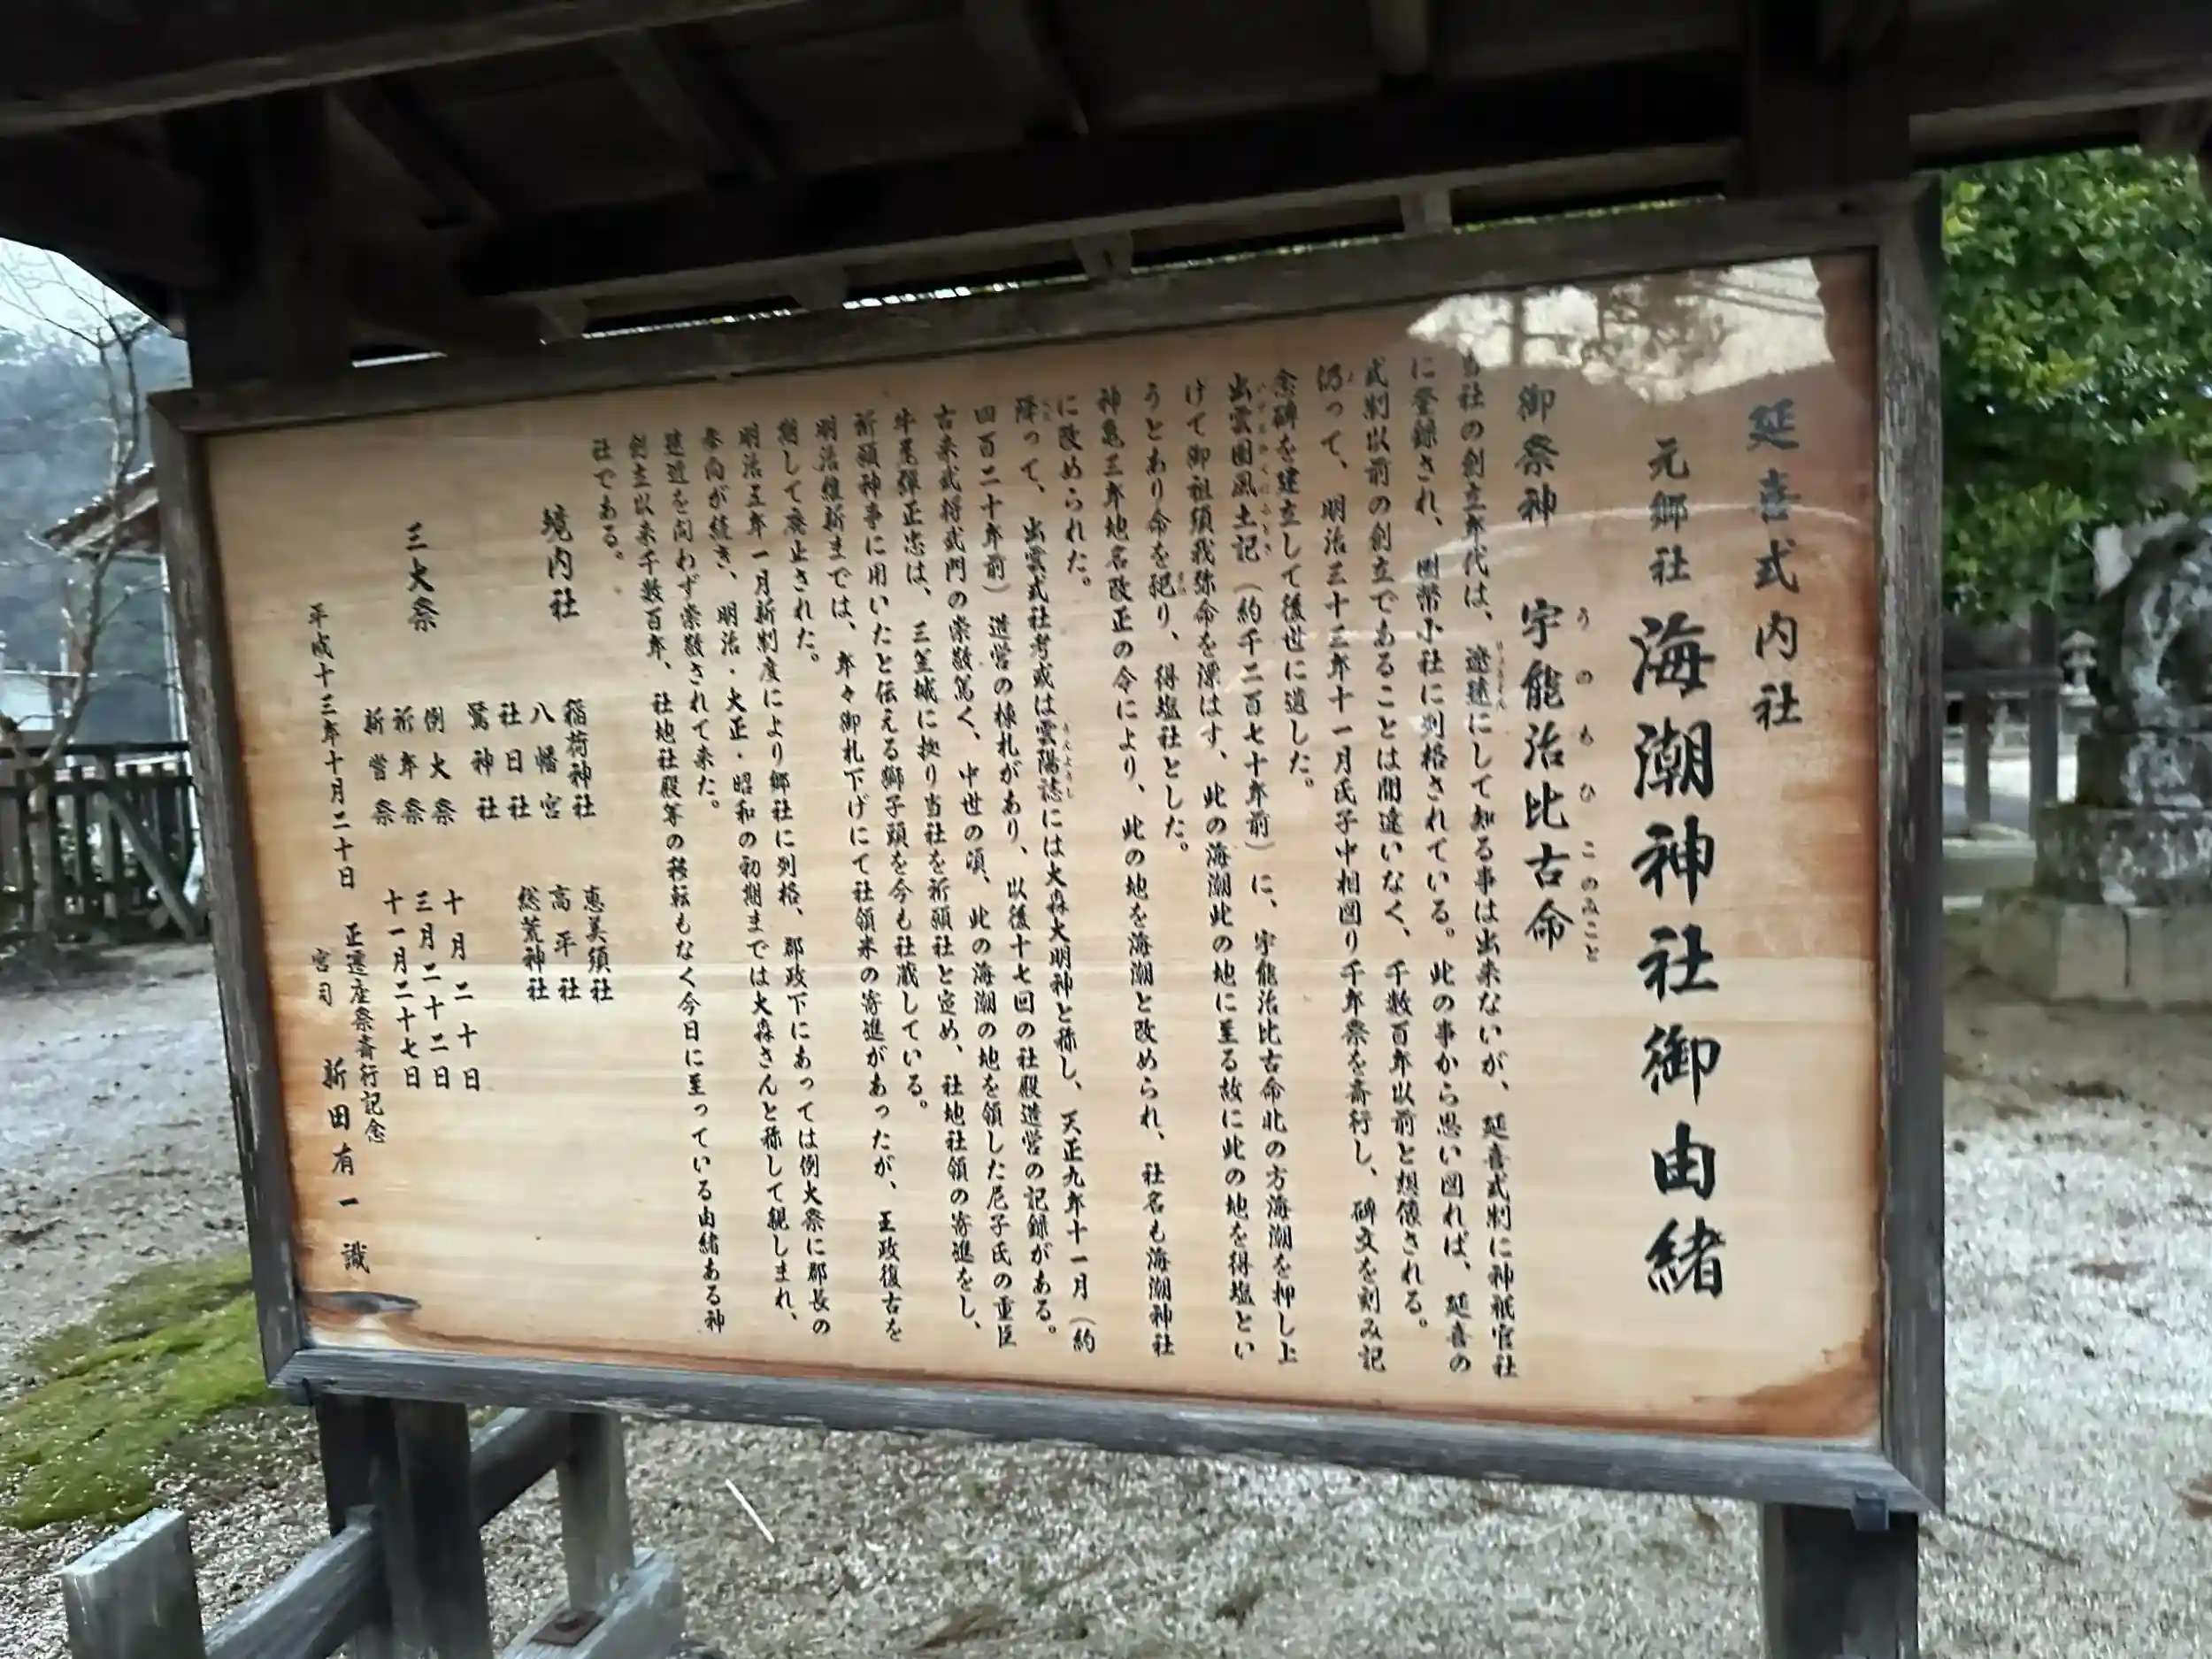 延喜式内社
元郷社 海潮神社御由緒
御祭神 宇能治比古命
うのちひこのみこと
当社の創立年代は、遼遠にして知る事は出来ないが、延喜式制に神祇官社
に登録され、国幣小社に列格されている。此の事から思い図れば、延喜の
式制以前の創立であることは間違いなく、千数百年以前と想像される。
仍って、明治三十三年十一月氏子中相図り千年祭を斎行し、碑文を刻み記
念碑を建立して後世に遺した。
出雲国風土記(約千二百七十年前)に、宇能治比古命北の方海潮を押し上
げて御祖須我弥命を漂はす、此の海潮此の地に至る故に此の地を得塩とい
うとあり命を祀り、得塩社とした。
神亀三年地名改正の令により、此の地を海潮と改められ、社名も海潮神社
に改められた。
降って、出雲式社考或は雲陽誌には大森大明神と称し、天正九年十一月(約
四百二十年前)造営の棟札があり、以後十七回の社殿造営の記録がある。
古来武将武門の崇敬篤く、中世の頃、此の海潮の地を領した尼子氏の重臣
牛尾弾正忠は、三笠城に拠り当社を祈願社と定め、社地社領の寄進をし、
祈願神事に用いたと伝える獅子頭を今も社蔵している。
明治維新までは、年々御札下げにて社領米の寄進があったが、王政復古を
期して廃止された。
明治五年一月新制度により郷社に列格、郡政下にあっては例大祭に郡長の
参向が続き、明治・大正・昭和の初期までは大森さんと称して親しまれ、
遠近を問わず崇敬されて来た。
創立以来千数百年、社地社殿等の移転もなく今日に至っている由緒ある神
社である。
境内社
稲荷神社 恵美須社
八幡宮 高平社
社日社 総荒神社
鷺神社
三大祭
例大祭 十月二十日
祈年祭 三月二十二日
新嘗祭 十一月二十七日
平成十三年十月二十日 正遷座祭斎行記念
宮司 新田有一 識